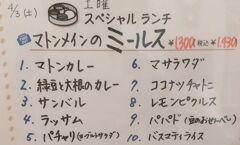 4/3(土)
土曜
スペシャル ランチ
マトンメインの ミールス ¥1300 税込 ¥1430
1. マトンカレー
2. 緑豆と大根のカレー
3. サンバル
4. ラッサム
5. パチャリ(ヨーグルトサラダ)
6. マサラワダ
7. ココナツチャトニ
8. レモンピクルス
9. パパド(豆のおせんべい)
10. バスマティライス